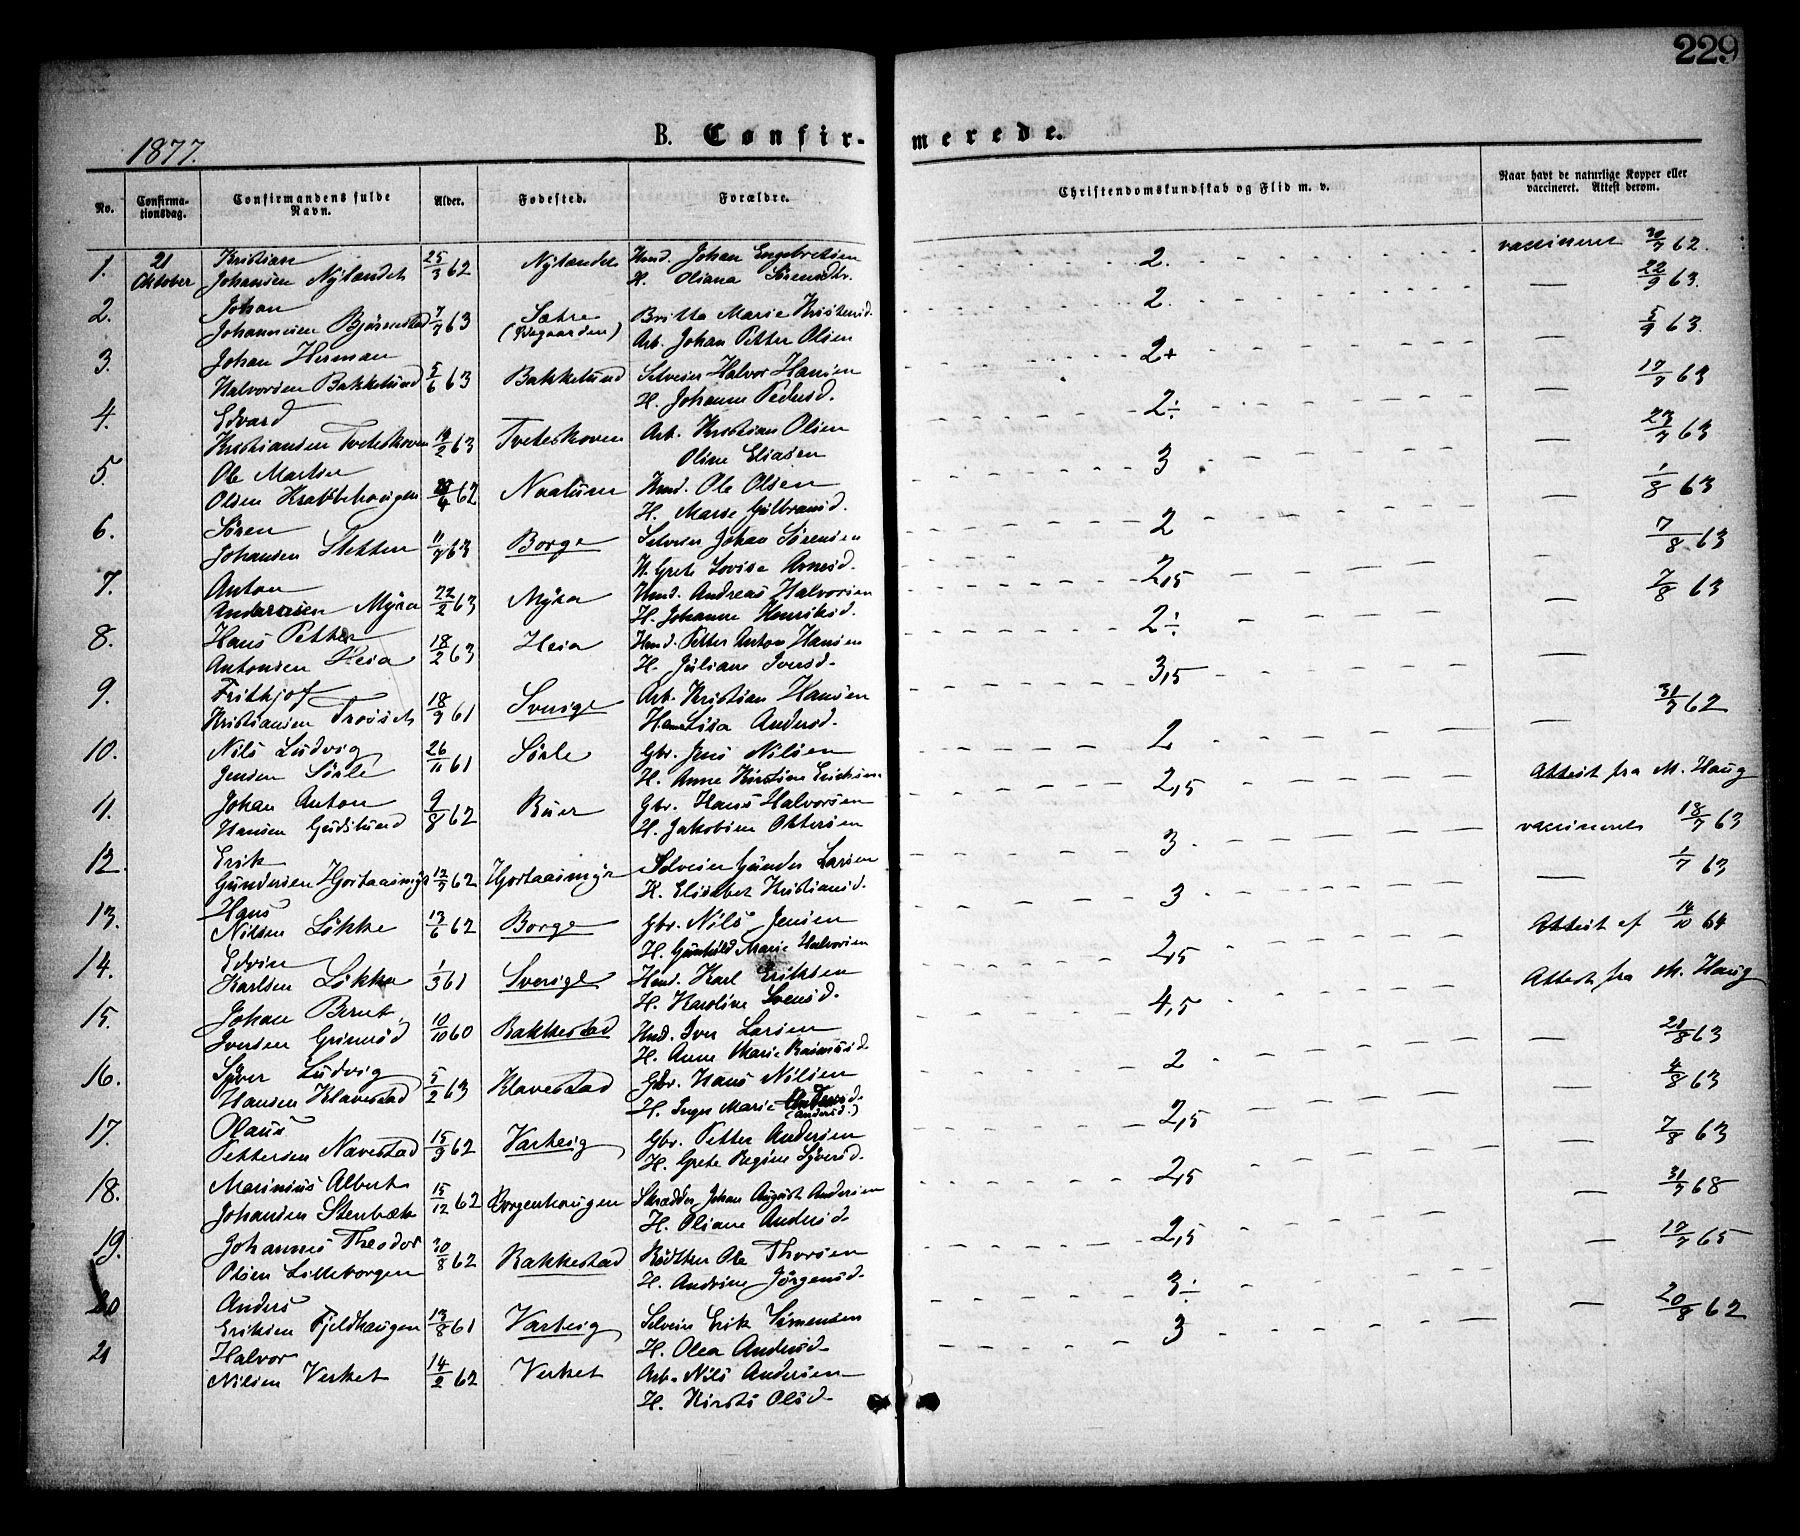 229
1877.
B. Confirmerede.
No.
Confirmationsdag.
Confirmandens fulde Navn.
Alder.
Fødested.
Forældre.
Christendomskundskab og Flid m. v.
Naar havt de naturlige Kopper eller vaccineret. Attest derom.
1. 21 Oktober Kristian Johansen Nylandet 25/3 62 Nylandet Hmd. Johan Engebretsen H. Oliana Sörensdtr. 2. vaccineret 30/7 62.
2. Johan Johannesen Bjørnstad 7/7 63 Sætre (Prægaarden) Britta Marie Kristensd. Arb. Johan Petter Olsen 2. — 22/9 63.
3. Johan Herman Halvorsen Bakkelund 5/6 63 Bakkelund Selveier Halvor Hansen H. Johanne Pedersd. 2+ — 5/9 63.
4. Edvard Kristiansen Tveteskoven 14/2 63 Tveteskoven Arb. Kristian Olsen Oline Eliasen 2÷ — 17/7 63
5. Ole Martin Olsen Krabbehougen 4 62 Naalum Hmd. Ole Olsen H. Marie Gulbransd. 3 — 23/7 63
6. Sören Johansen Sletten 11/7 63 Borge Selveier Johan Sörensen H. Grete Lovise Arnesd. 2 — 1/8 63
7. Anton Andersen Myra 22/2 63 Myra Hmd. Andreas Halvorsen H. Johanne Henriksd. 2,5 — 7/8 63
8. Hans Petter Antonsen Heia 18/2 63 Heia Hmd. Petter Anton Hansen H. Juliane Iversd. 2÷ — 7/8 63
9. Frithjof Kristiansen Trosset 18/9 61 Sverige Arb. Kristian Hansen H. Lisa Andersd. 3,5 —
10. Nils Ludvig Jensen Sörle 26/11 61 Sörle Gbr. Jens Nilsen H. Anne Kirstine Eriksen 2 — 31/7 62
11. Johan Anton Hansen Gudslund 9/8 62 Buer Gbr. Hans Halvorsen H. Jakobine Ottersen 2,5 Attest fra M. Haug
12. Erik Gundersen Hjortaasmyr 12/7 62 Hjortaasmyr Selveier Gunder Larsen H. Elisabet Kristiansd. 3 vaccineret 18/7 63
13. Hans Nilsen Løkke 13/6 62 Borge Gbr. Nils Jensen H. Gunhild Marie Halvorsen 3 — 1/7 63
14. Edvin Karlsen Løkke 1/3 61 Sverige Hmd. Karl Eriksen H. Karoline Svensd. 2,5 Attest af 14/10 64
15. Johan Bernt Iversen Grimsød 10/10 60 Bakkestad Hmd. Iver Larsen H. Anne Marie Rasmusd. 4,5 Attest fra M. Haug
16. Syver Ludvig Hansen Klavestad 5/2 63 Klavestad Gbr. Hans Nilsen H. Inger Marie (Andersd.) 2 — 21/8 63
17. Olaus Pettersen Navestad 15/9 62 Varteig Gbr. Petter Andersen H. Grete Regine Syversd. 2,5 — 4/8 63
18. Marinius Albert Johansen Stenbæk 15/12 62 Borgenhougen Skrædder Johan August Andersen H. Oliane Andersd. 2,5 — 7/8 63
19. Johannes Theodor Olsen Lilleborgen 30/8 62 Bakkestad Ole Thorsen H. Andrine Jørgensd. 2,5 — 31/7 68
20 Anders Eriksen Fjeldhaugen 13/8 61 Varteig Selveier Erik Simensen H. Olea Andersd. 3÷ — 17/7 65
21 Halvor Nilsen Verket 14/2 62 Verket Arb. Nils Andersen H. Kirsti Olsd. 3 — 20/8 62